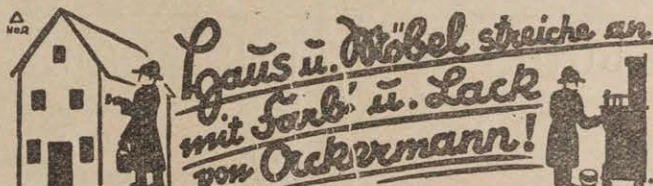 Haus u. Möbel streiche an
mit Farb' u. Lack
von Ackermann!